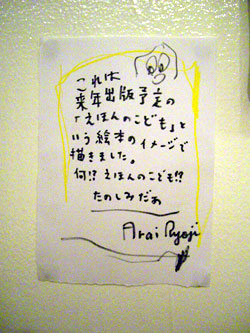 これは
来年出版予定の
「えほんのこども」と
いう絵本のイメージで
描きました。
何!? えほんのこども!?
たのしみだぁ
Arai Ryoji